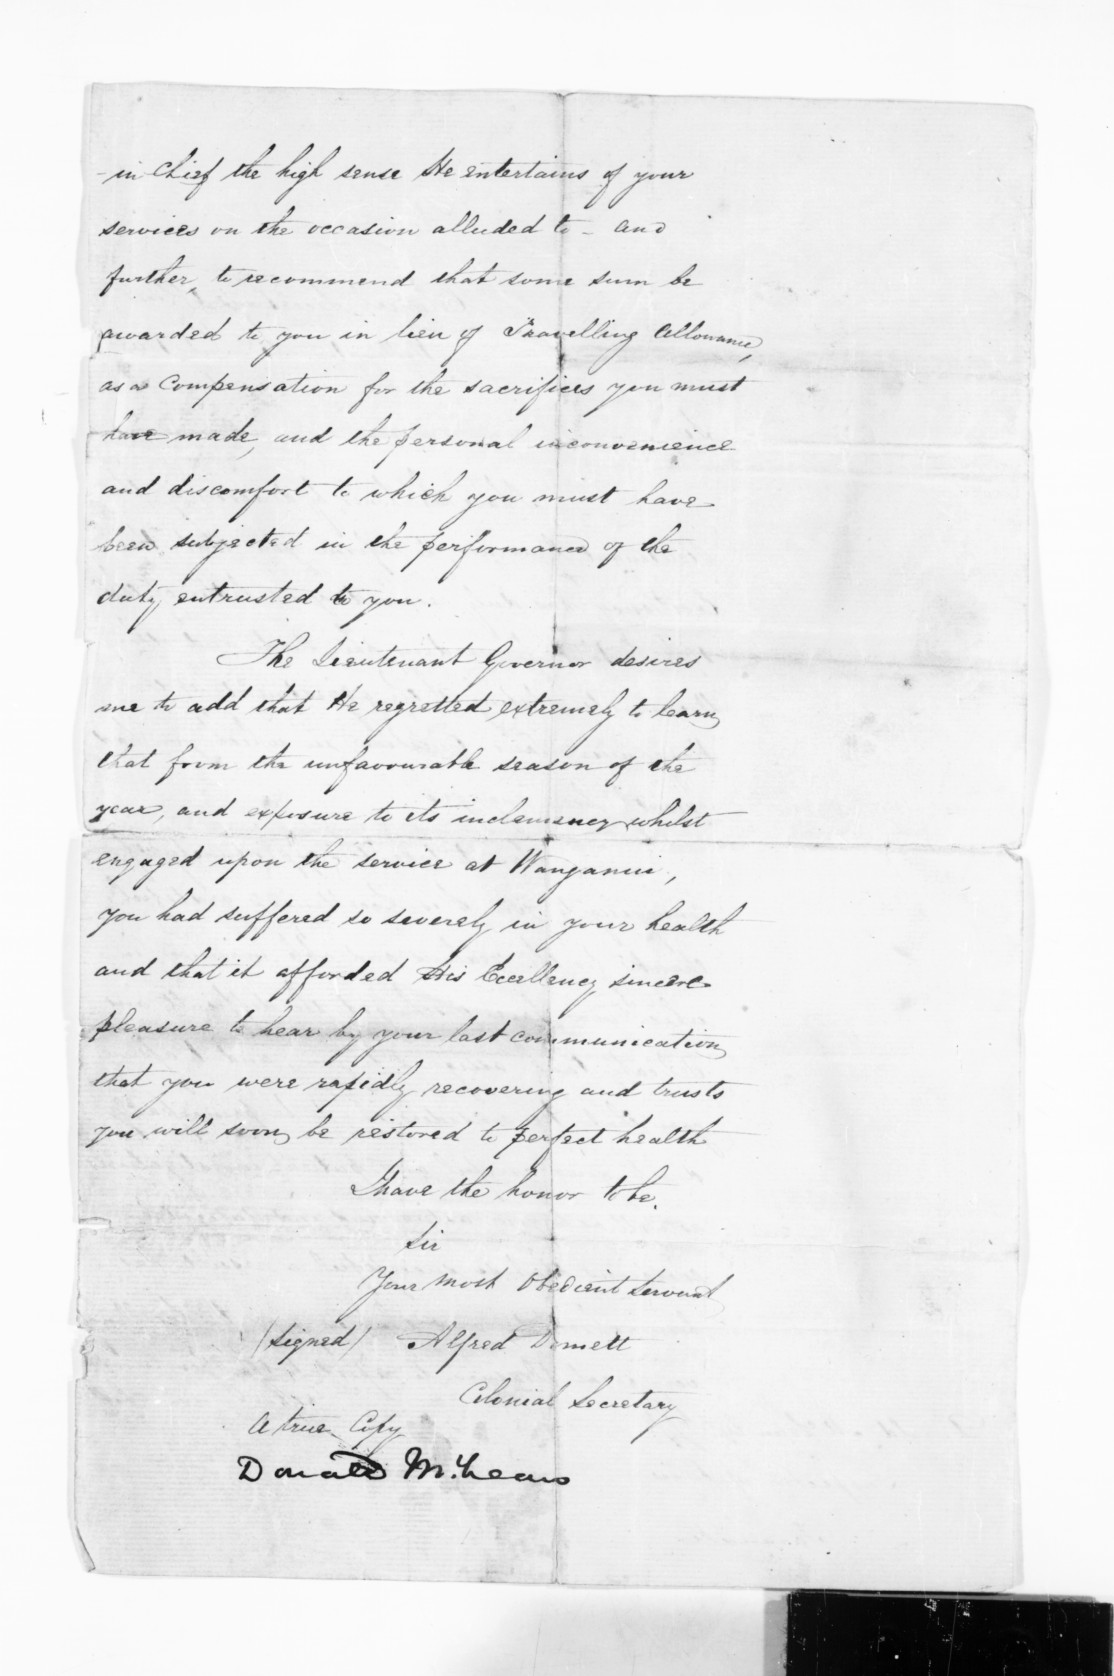 -in Chief the high sense He entertains of your
services on the occasion alluded to - and
further, to recommend that some sum be
awarded to you in lieu of Travelling Allowance,
as a Compensation for the sacrifices you must
have made, and the personal inconvenience
and discomfort to which you must have
been subjected in the performance of the
duty entrusted to you.
The Lieutenant Governor desires
me to add that He regretted extremely to learn
that from the unfavourable season of the
year, and exposure to its inclemency whilst
engaged upon the service at Wanganui,
you had suffered so severely in your health
and that it afforded His Excellency sincere
pleasure to hear by your last communication
that you were rapidly recovering and trusts
you will soon be restored to perfect health
I have the honor to be.
Sir
Your most Obedient Servant
(Signed) Alfred Domett
Colonial Secretary
A true Copy
Donald McLean